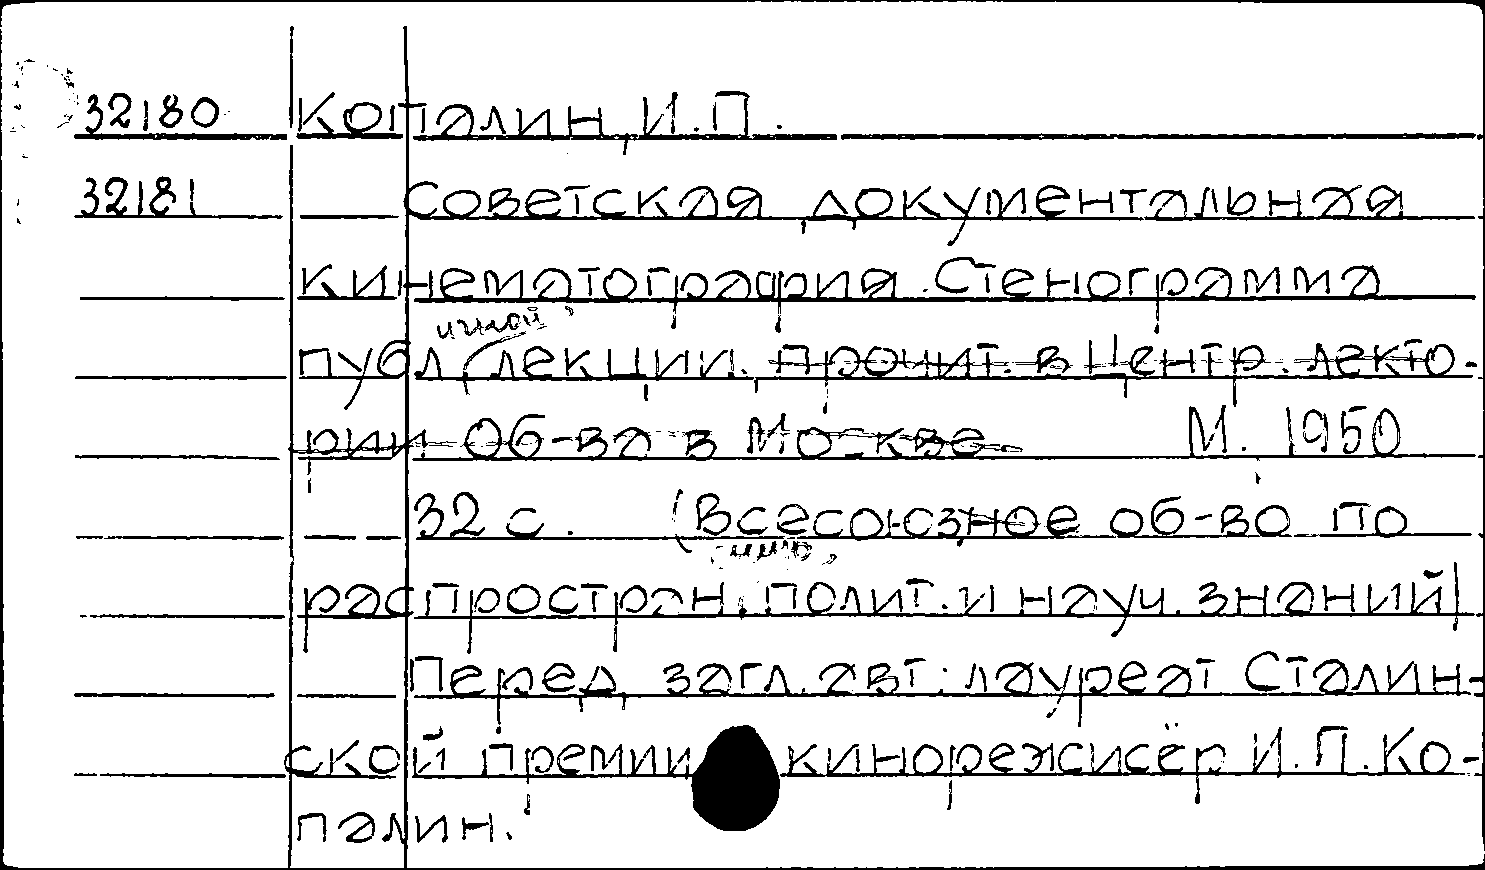 32180 Копалин, И.П.
32181 Советская документальная
кинематография. Стенограмма
ичной
публ. лекции, прочит. в Центр. лекто-
рии Об-ва в Москве. М. 1950
32 с. (Всесоюзное об-во по
распростран. полит. и науч. знаний)
Перед загл. авт.: лауреат Сталин-
ской премии кинорежиссёр И.П. Ко-
палин.